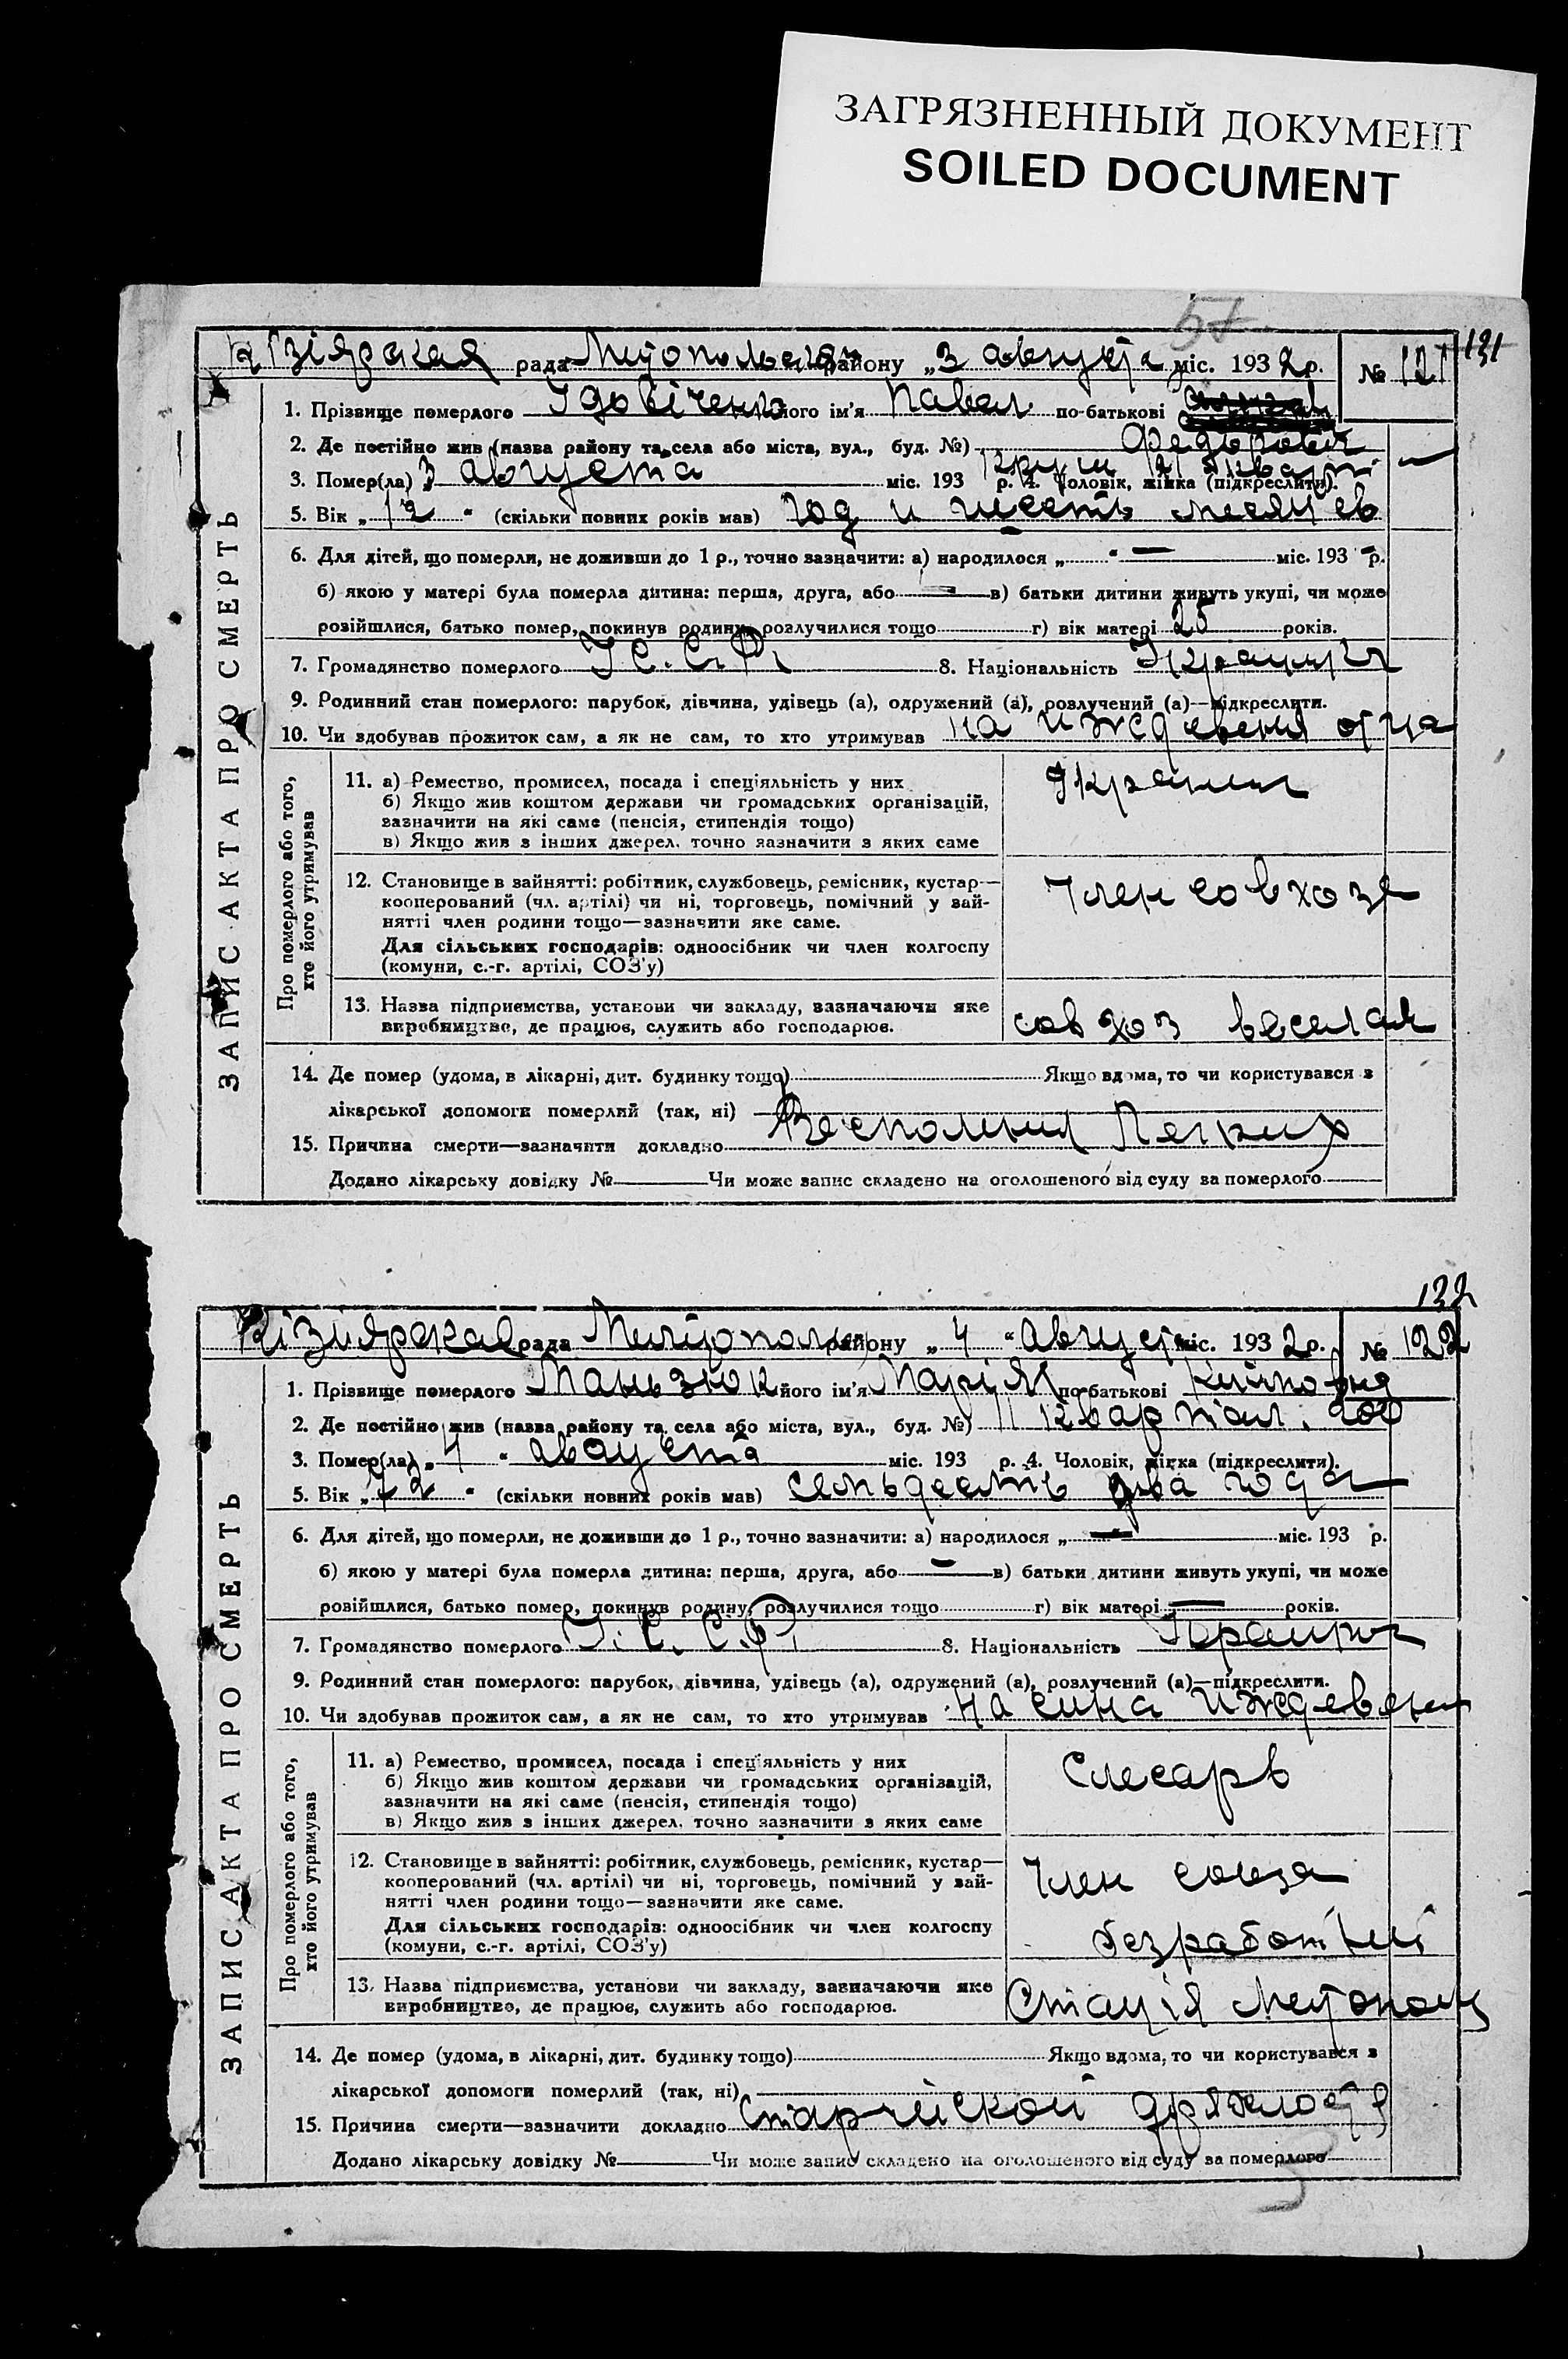 ЗАГРЯЗНЕННЫЙ ДОКУМЕНТ
SOILED DOCUMENT
57
Кізіярская рада району „3 августа міс. 1932 р. № 121 131
1. Прізвище померлого Удовіченко його ім'я Павел по-батькові
Федорович
2. Де постійно жив (назва району та села або міста, вул., буд. №)
3. Помер(ла) 3 августа міс. 193 р. 4. Чоловік, жінка (підкреслити).
5. Вік „ 1/2 " (скільки повних років мав) год и шесть месяцев
6. Для дітей, що померли, не доживши до 1 р., точно зазначити: а) народилося „ — " — міс. 193 – р.
б) якою у матері була померла дитина: перша, друга, або — в) батьки дитини живуть укупі, чи може
розійшлися, батько помер, покинув родину, розлучилися тощо г) вік матері 25 років.
7. Громадянство померлого У.С.С.Р. 8. Національність
9. Родинний стан померлого: парубок, дівчина, удівець (а), одружений (а), розлучений (а)—підкреслити.
10. Чи здобував прожиток сам, а як не сам, то хто утримував на иждевения отца
ЗАПИС АКТА ПРО СМЕРТЬ
Про померлого або того, хто його утримував
11. а) Ремество, промисел, посада і спеціяльність у них
б) Якщо жив коштом держави чи громадських організацій,
зазначити на які саме (пенсія, стипендія тощо)
в) Якщо жив з інших джерел, точно зазначити з яких саме
12. Становище в зайнятті: робітник, службовець, ремісник, кустар—
кооперований (чл. артілі) чи ні, торговець, помічний у зай-
нятті член родини тощо—зазначити яке саме.
Для сільських господарів: одноосібник чи член колгоспу
(комуни, с.-г. артілі, СОЗ'у)
Член совхоза
13. Назва підприємства, установи чи закладу, зазначаючи яке
виробництво, де працює, служить або господарює.
совхоз
14. Де помер (удома, в лікарні, дит. будинку тощо) Якщо вдома, то чи користувався з
лікарської допомоги померлий (так, ні)
15. Причина смерти—зазначити докладно Восполения Легких
Додано лікарську довідку № Чи може запис складено на оголошеного від суду за померлого
132
Кізиярская рада району „ 4 " августа міс. 1932 р. № 122
1. Прізвище померлого Таньзюк його ім'я Марія по-батькові
2. Де постійно жив (назва району та села або міста, вул., буд. №) 11 квартал
3. Помер(ла) „ 4 " августа міс. 193 р. 4. Чоловік, жінка (підкреслити).
5. Вік „ 72 " (скільки повних років мав) семьдесять два года
6. Для дітей, що померли, не доживши до 1 р., точно зазначити: а) народилося „ — " міс. 193 р.
б) якою у матері була померла дитина: перша, друга, або — в) батьки дитини живуть укупі, чи може
розійшлися, батько помер, покинув родину, розлучилися тощо г) вік матері — років.
7. Громадянство померлого У.С.С.Р. 8. Національність
9. Родинний стан померлого: парубок, дівчина, удівець (а), одружений (а), розлучений (а)—підкреслити.
10. Чи здобував прожиток сам, а як не сам, то хто утримував на сина иждевени
ЗАПИС АКТА ПРО СМЕРТЬ
Про померлого або того, хто його утримував
11. а) Ремество, промисел, посада і спеціяльність у них
б) Якщо жив коштом держави чи громадських організацій,
зазначити на які саме (пенсія, стипендія тощо)
в) Якщо жив з інших джерел, точно зазначити з яких саме
Слесарь
12. Становище в зайнятті: робітник, службовець, ремісник, кустар—
кооперований (чл. артілі) чи ні, торговець, помічний у зай-
нятті член родини тощо—зазначити яке саме.
Для сільських господарів: одноосібник чи член колгоспу
(комуни, с.-г. артілі, СОЗ'у)
Член союза
13. Назва підприємства, установи чи закладу, зазначаючи яке
виробництво, де працює, служить або господарює.
Стація
14. Де помер (удома, в лікарні, дит. будинку тощо) Якщо вдома, то чи користувався з
лікарської допомоги померлий (так, ні)
15. Причина смерти—зазначити докладно
Додано лікарську довідку № Чи може запис складено на оголошеного від суду за померлого